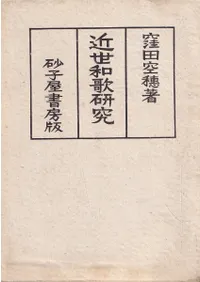 窪田空穂著
近世和歌研究
砂子屋書房版